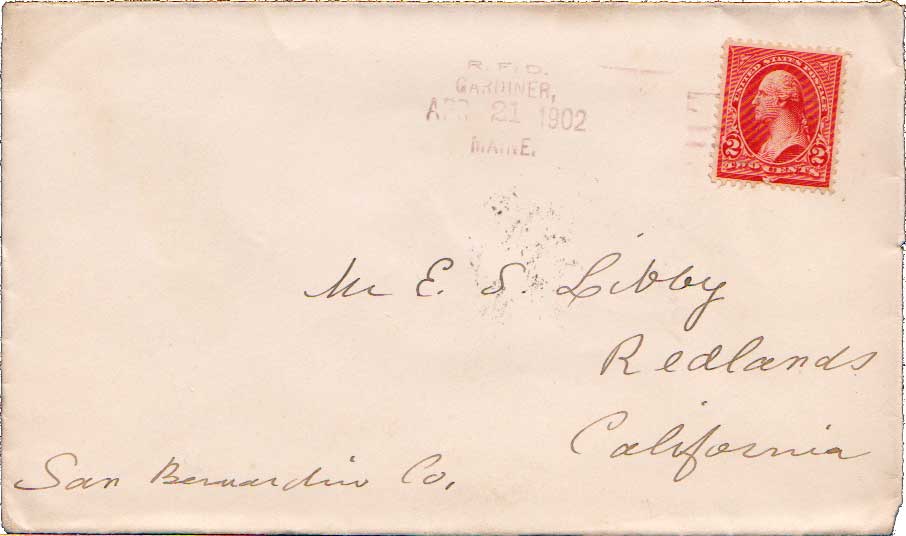 R.F.D.
GARDINER,
APR 21 1902
MAINE.
UNITED STATES POSTAGE
2 2
TWO CENTS
Mr E. S. Libby
Redlands
California
San Bernardino Co.